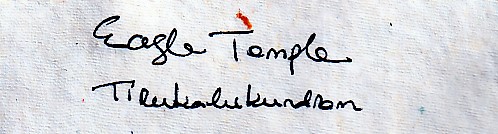 Eagle Temple
Tirukalukundram